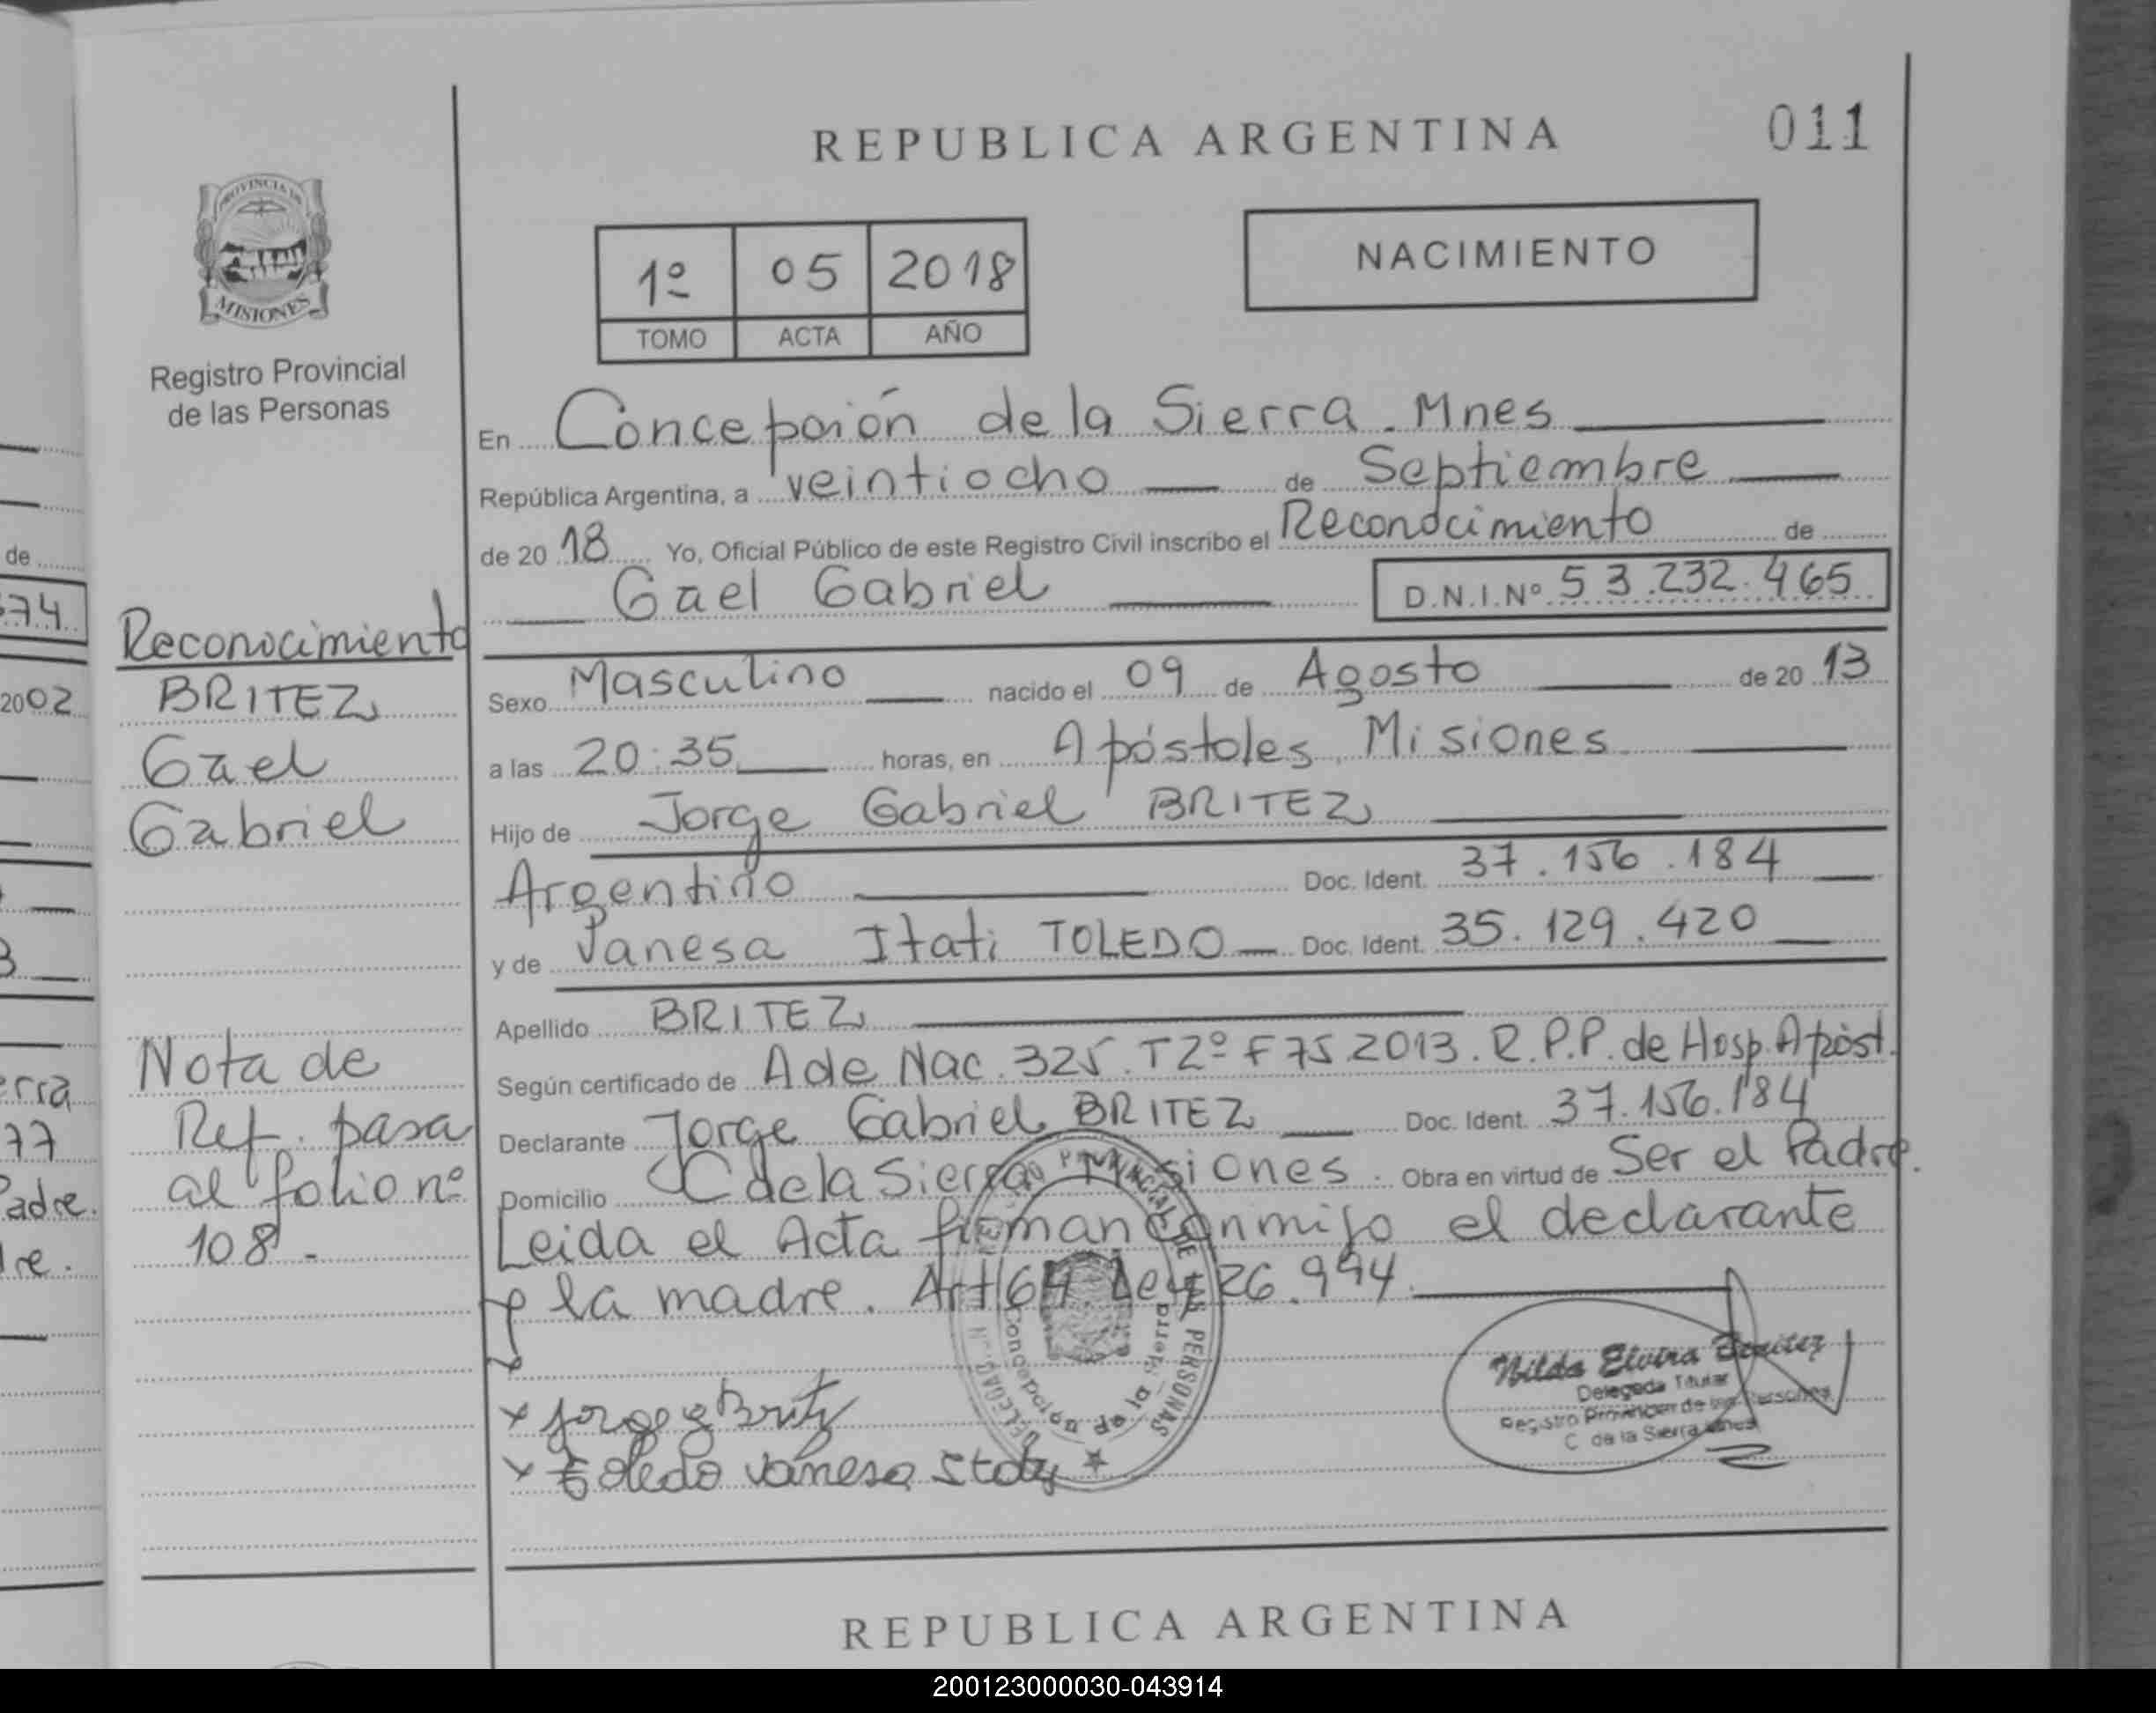 REPUBLICA ARGENTINA
011
PROVINCIA DE
MISIONES
Registro Provincial
de las Personas
1º 05 2018
TOMO ACTA AÑO
NACIMIENTO
En Concepción de la Sierra. Mnes
República Argentina, a veintiocho de Septiembre
de 20 18 Yo, Oficial Público de este Registro Civil inscribo el Reconocimiento de
Gael Gabriel D.N.I.Nº 53.232.465
Sexo Masculino nacido el 09 de Agosto de 20 13
a las 20:35 horas, en Apóstoles, Misiones
Hijo de Jorge Gabriel BRITEZ
Argentino Doc. Ident. 37.156.184
y de Vanesa Itati TOLEDO Doc. Ident. 35.129.420
Apellido BRITEZ
Según certificado de A de Nac. 325. T2º F75 2013. R.P.P. de Hosp. Apóst.
Declarante Jorge Gabriel BRITEZ Doc. Ident. 37.156.184
Domicilio C de la Sierra Misiones. Obra en virtud de Ser el Padre.
Leida el Acta firman conmigo el declarante
y la madre. Art 64. Ley 26.994.
Jorge g Britz
toledo vanesa
Concepcion de la Sierra
PERSONAS
Nilda Elvira Benitez
Delegada Titular
Registro Provincial de las Personas
C de la Sierra Mnes
Reconocimiento
BRITEZ
Gael
Gabriel
Nota de
Ref. pasa
al folio nº
108.-
de
374
2002
erra
77
Padre.
re.
REPUBLICA ARGENTINA
200123000030-043914